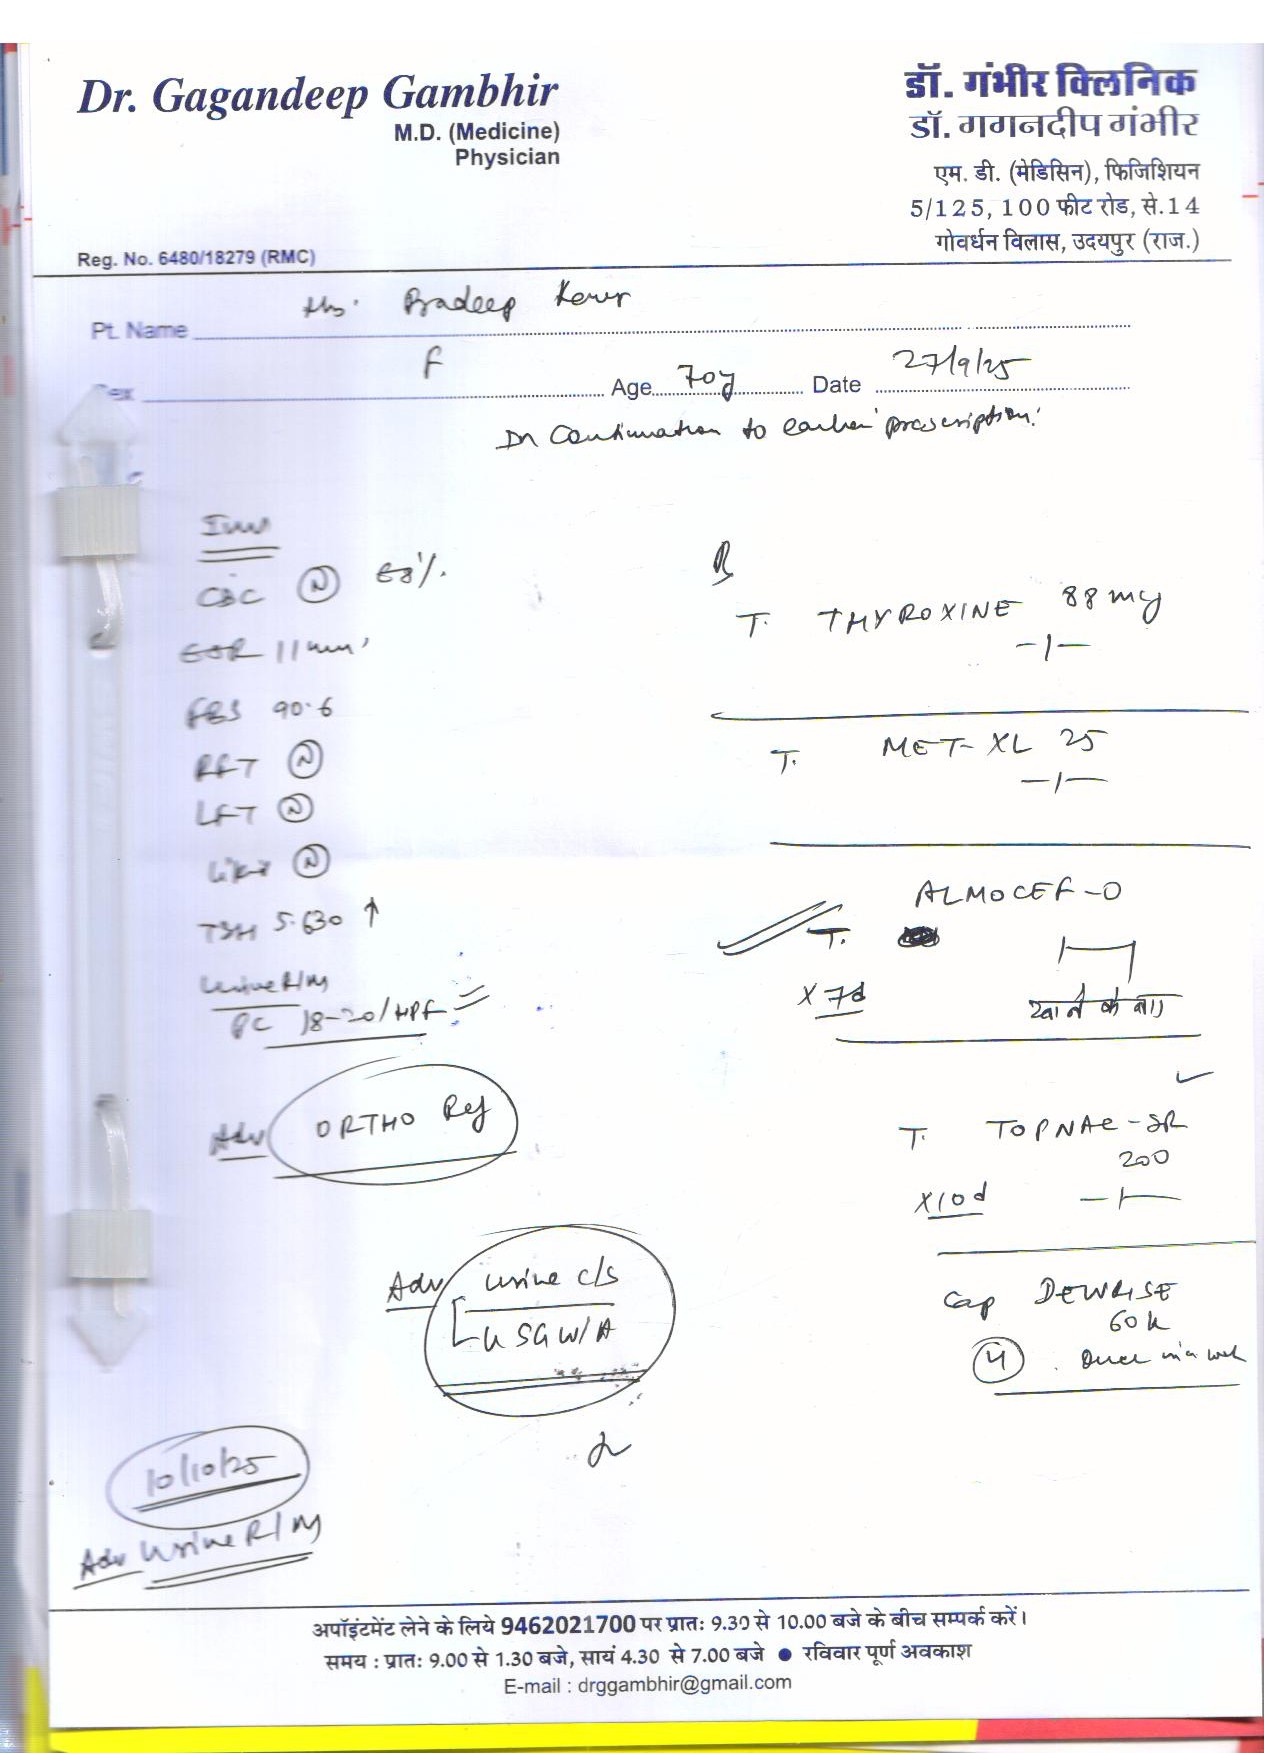 Dr. Gagandeep Gambhir
M.D. (Medicine)
Physician
Reg. No. 6480/18279 (RMC)
डॉ. गंभीर क्लिनिक
डॉ. गगनदीप गंभीर
एम. डी. (मेडिसिन), फिजिशियन
5/125, 100 फीट रोड, से.14
गोवर्धन विलास, उदयपुर (राज.)
Pt. Name Pradeep Kour
Sex F Age 70y Date 27/9/25
In Continuation to earlier prescription.
Inv
CBC (N) E8%.
ESR 11mm
FBS 90.6
RFT (N)
LFT (N)
(N)
TSH 5.630 ↑
Urine R/M
PC 18-20/HPF
Adv ORTHO Ref
Adv Urine C/S
USG W/A
10/10/25
Adv Urine R/M
R
T. THYROXINE 88 mcg
-1-
T. MET-XL 25
-1-
ALMOCEF-O
T.
X 7d खाने के बाद
T. TOPNAC-SR
200
X10d -1-
Cap DEWRISE
60K
(4) Once in a week
अपॉइंटमेंट लेने के लिये 9462021700 पर प्रातः 9.30 से 10.00 बजे के बीच सम्पर्क करें।
समय : प्रातः 9.00 से 1.30 बजे, सायं 4.30 से 7.00 बजे ● रविवार पूर्ण अवकाश
E-mail : drggambhir@gmail.com